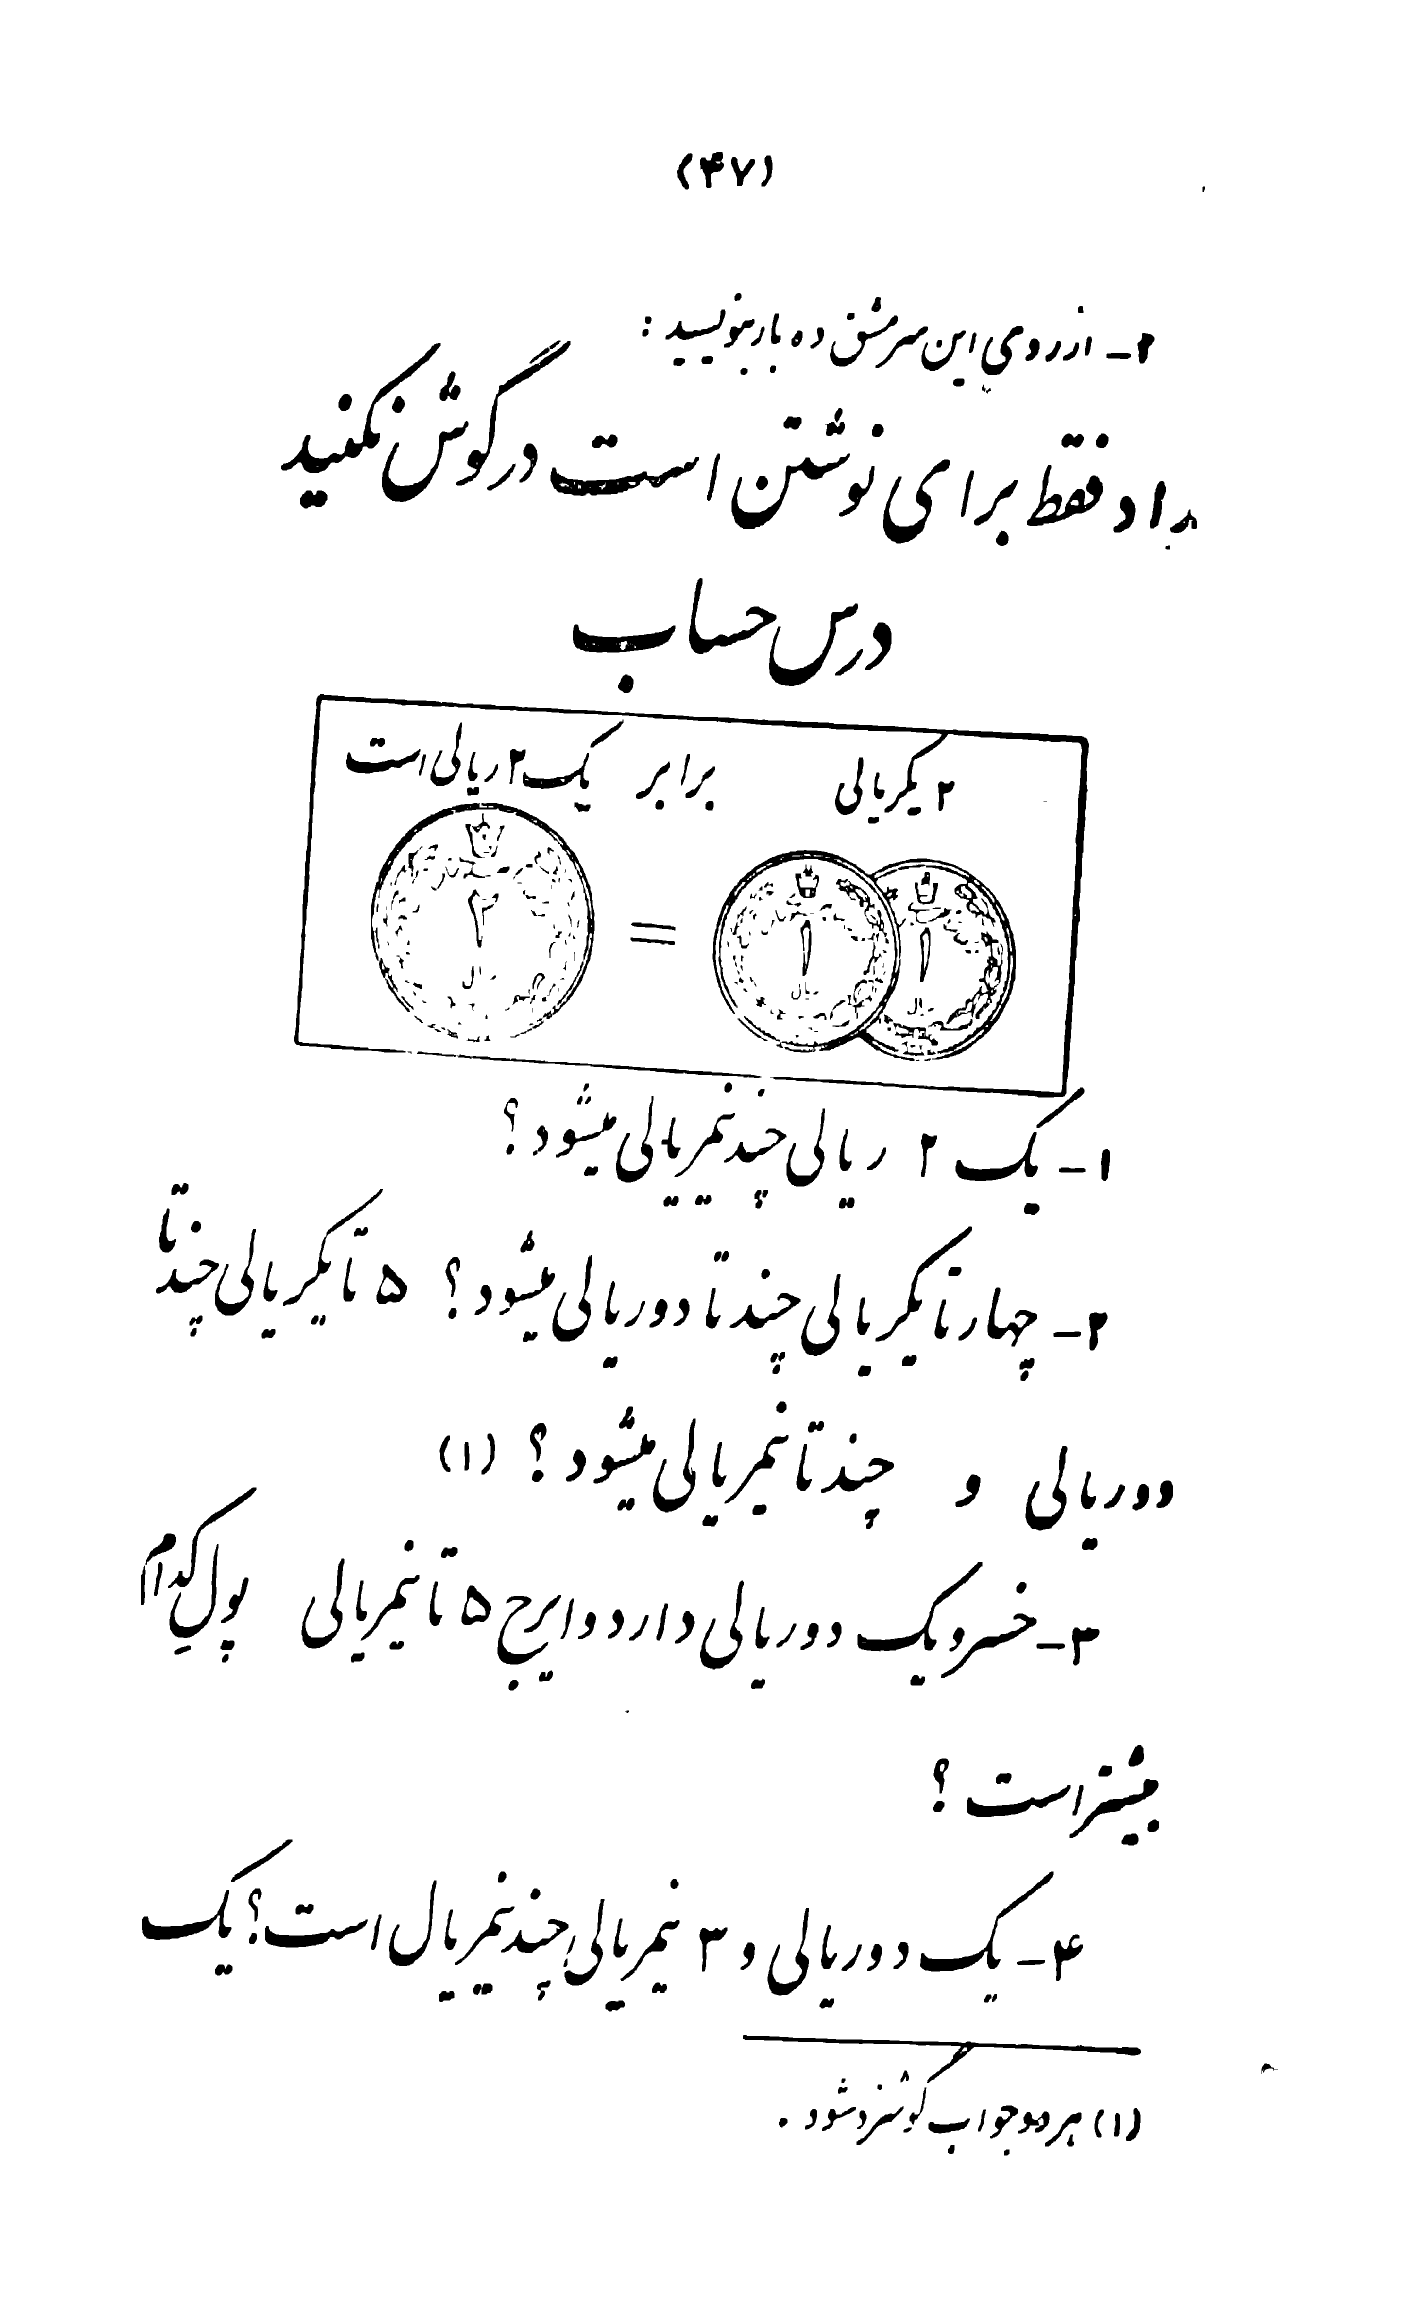 (۴۷)
۲- از روی این سرمشق ده بار بنویسید :
مداد فقط برای نوشتن است در گوش نکنید
درس حساب
۲ یکریالی برابر یک ۲ ریالی است
۲ ریال = ۱ ریال ۱ ریال
۱- یک ۲ ریالی چند نیمریالی میشود ؟
۲- چهار تا یکریالی چند تا دو ریالی میشود ؟ ۵ تا یکریالی چند تا
دو ریالی و چند تا نیمریالی میشود ؟ (۱)
۳- خسرو یک دو ریالی دارد و ایرج ۵ تا نیمریالی پولِ کدام
بیشتر است ؟
۴- یک دو ریالی و ۳ نیمریالی چند نیمریال است ؟ یک
(۱) هر دو جواب گوشزد شود .